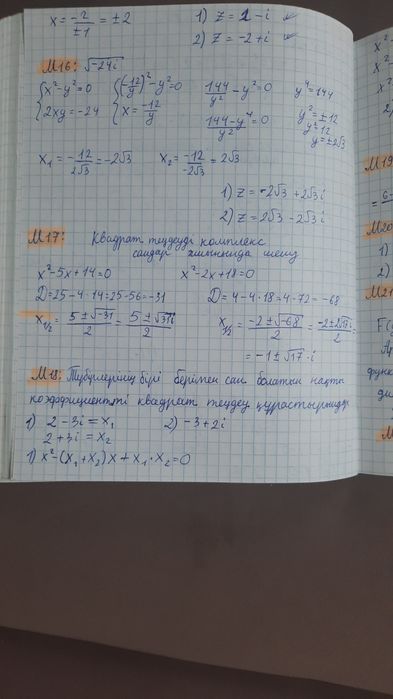 x = -2/±1 = ±2
1) z = 2 - i
2) z = -2 + i
М16: √-24i
{x²-y²=0 {(-12/y)²-y²=0 144/y² - y²=0 y⁴=144
{2xy=-24 {x=-12/y 144-y⁴/y²=0 y²=±12
y²=12
y=±2√3
x₁=-12/2√3=-2√3 x₂=-12/-2√3=2√3
1) z=-2√3+2√3i
2) z=2√3-2√3i
М17: Квадрат теңдеуді комплекс
сандар жиынында шеш
x²-5x+14=0 x²-2x+18=0
D=25-4·14=25-56=-31 D=4-4·18=4-72=-68
x₁/₂=5±√-31/2=5±√31i/2 x₁/₂=-2±√-68/2=-2±2√17i/2=
=-1±√17·i
М18: Түбірлерінің бірі берілген сан болатын нақты
коэффициентті квадрат теңдеу құрастырыңдар
1) 2-3i=x₁ 2) -3+2i
2+3i=x₂
1) x²-(x₁+x₂)x+x₁·x₂=0
М19
М20
1)
2)
М21